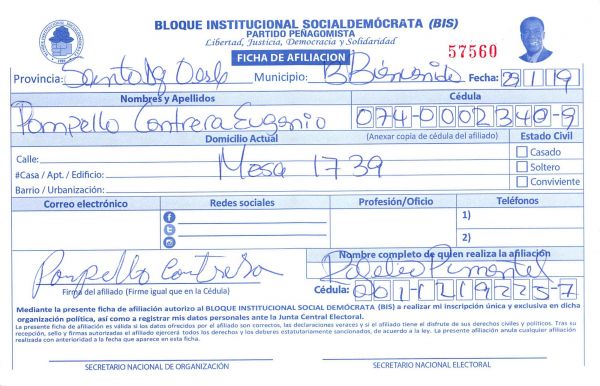 BLOQUE INSTITUCIONAL SOCIALDEMÓCRATA (BIS)
PARTIDO PEÑAGOMISTA
Libertad, Justicia, Democracia y Solidaridad
FICHA DE AFILIACION
57560
Provincia: Santo Dgo Oeste Municipio: Fecha: 29/1/19
Nombres y Apellidos Cédula
Pompello Contrera Eugenio 074-0002340-9
Domicilio Actual (Anexar copia de cédula del afiliado) Estado Civil
Calle: Casado
Mesa 1739
#Casa / Apt. / Edificio: Soltero
Barrio / Urbanización: Conviviente
Correo electrónico Redes sociales Profesión/Oficio Teléfonos
1)
2)
Nombre completo de quien realiza la afiliación
Pompello Contrera Pimentel
Firma del afiliado (Firme igual que en la Cédula) Cédula: 001-1219225-7
Mediante la presente ficha de afiliación autorizo al BLOQUE INSTITUCIONAL SOCIAL DEMÓCRATA (BIS) a realizar mi inscripción única y exclusiva en dicha
organización política, así como a registrar mis datos personales ante la Junta Central Electoral.
La presente ficha de afiliación es válida si los datos ofrecidos por el afiliado son correctos, las declaraciones veraces y si el afiliado tiene el disfrute de sus derechos civiles y políticos. Tras su
recepción, sello y firmas autorizadas el afiliado ejercerá todos los derechos y los deberes estatutariamente sancionados, de acuerdo a la ley. La presente afiliación anula cualquier afiliación
realizada con anterioridad a la fecha que aparece en esta ficha.
SECRETARIO NACIONAL DE ORGANIZACIÓN SECRETARIO NACIONAL ELECTORAL